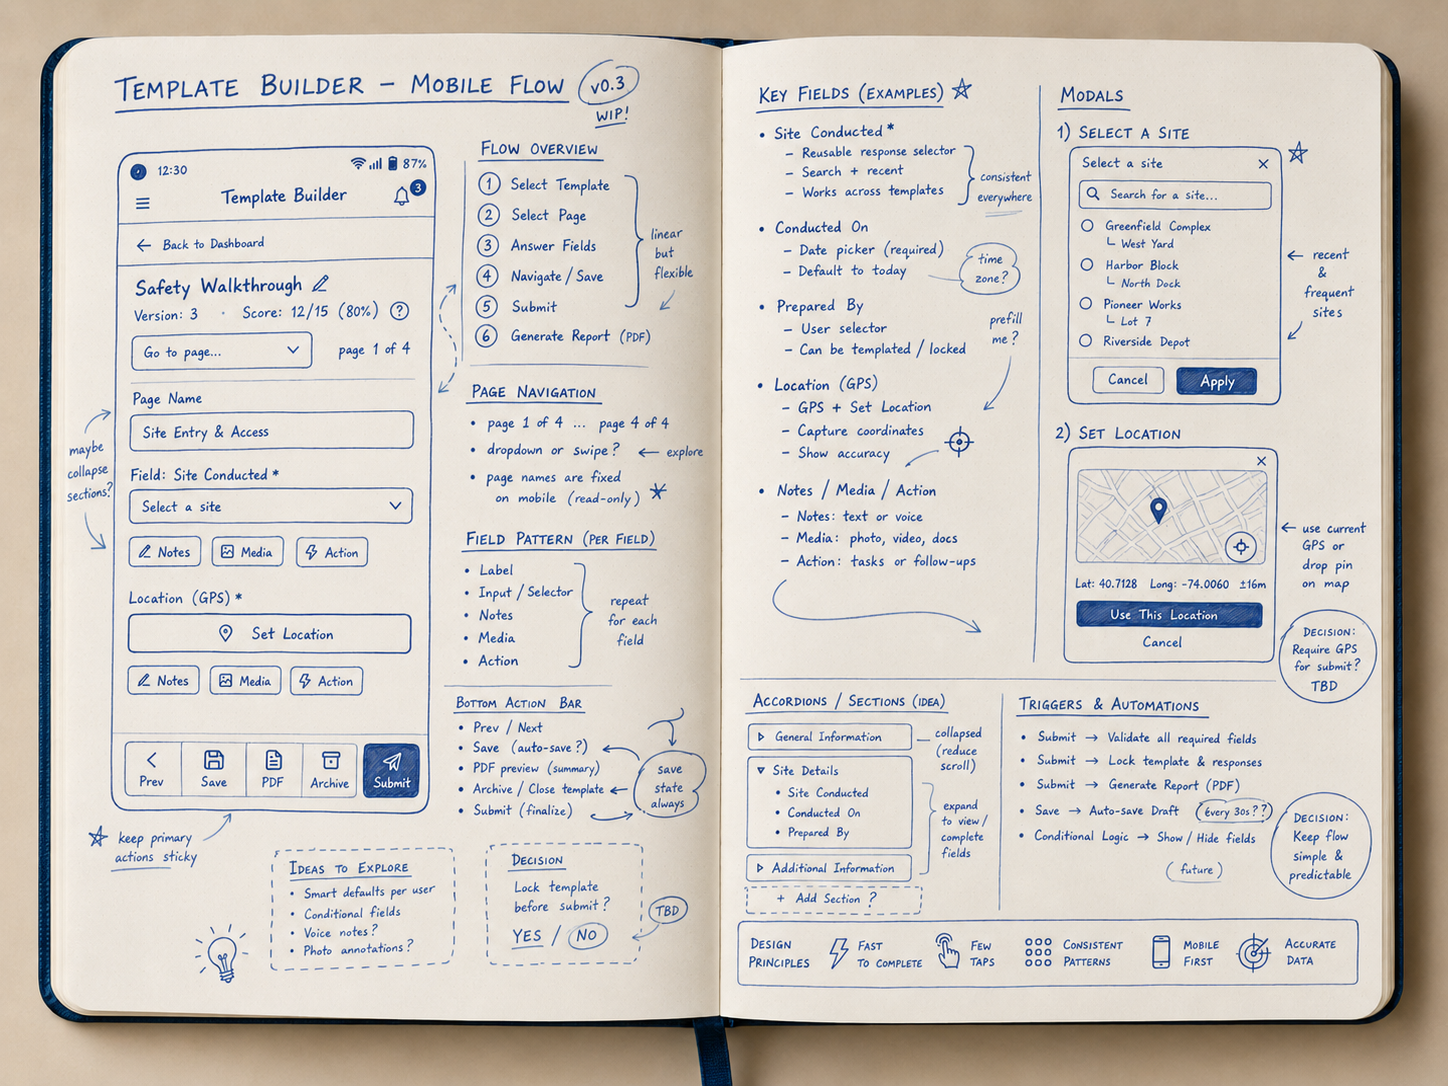 TEMPLATE BUILDER – MOBILE FLOW
v0.3
WIP!
12:30
87%
Template Builder
3
Back to Dashboard
Safety Walkthrough
Version: 3 · Score: 12/15 (80%) ?
Go to page...
page 1 of 4
Page Name
Site Entry & Access
Field: Site Conducted *
Select a site
Notes
Media
Action
Location (GPS) *
Set Location
Notes
Media
Action
Prev
Save
PDF
Archive
Submit
maybe
collapse
sections?
keep primary
actions sticky
FLOW OVERVIEW
1 Select Template
2 Select Page
3 Answer Fields
4 Navigate / Save
5 Submit
6 Generate Report (PDF)
linear
but
flexible
PAGE NAVIGATION
• page 1 of 4 ... page 4 of 4
• dropdown or swipe? ← explore
• page names are fixed
on mobile (read-only) *
FIELD PATTERN (PER FIELD)
• Label
• Input / Selector
• Notes
• Media
• Action
repeat
for each
field
BOTTOM ACTION BAR
• Prev / Next
• Save (auto-save?)
• PDF preview (summary)
• Archive / Close template
• Submit (finalize)
save
state
always
IDEAS TO EXPLORE
• Smart defaults per user
• Conditional fields
• Voice notes?
• Photo annotations?
DECISION
Lock template
before submit?
YES / NO
TBD
KEY FIELDS (EXAMPLES)
• Site Conducted *
– Reusable response selector
– Search + recent
– Works across templates
consistent
everywhere
• Conducted On
– Date picker (required)
– Default to today
time
zone?
• Prepared By
– User selector
– Can be templated / locked
prefill
me?
• Location (GPS)
– GPS + Set Location
– Capture coordinates
– Show accuracy
• Notes / Media / Action
– Notes: text or voice
– Media: photo, video, docs
– Action: tasks or follow-ups
MODALS
1) SELECT A SITE
Select a site
Search for a site...
Greenfield Complex
West Yard
Harbor Block
North Dock
Pioneer Works
Lot 7
Riverside Depot
Cancel
Apply
← recent
&
frequent
sites
2) SET LOCATION
Lat: 40.7128 Long: -74.0060 ±16m
Use This Location
Cancel
← use current
GPS or
drop pin
on map
DECISION:
Require GPS
for submit?
TBD
ACCORDIONS / SECTIONS (IDEA)
General Information
Site Details
• Site Conducted
• Conducted On
• Prepared By
Additional Information
+ Add Section ?
collapsed
(reduce
scroll)
expand
to view /
complete
fields
TRIGGERS & AUTOMATIONS
• Submit → Validate all required fields
• Submit → Lock template & responses
• Submit → Generate Report (PDF)
• Save → Auto-save Draft (every 30s??)
• Conditional Logic → Show / Hide fields
(future)
DECISION:
Keep flow
simple &
predictable
DESIGN
PRINCIPLES
FAST
TO COMPLETE
FEW
TAPS
CONSISTENT
PATTERNS
MOBILE
FIRST
ACCURATE
DATA